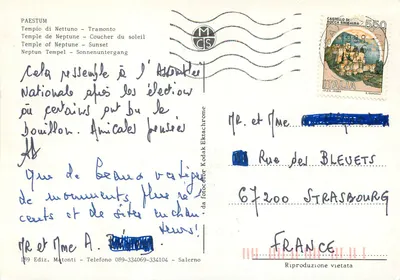 PAESTUM
Tempio di Nettuno - Tramonto
Temple de Neptune - Coucher du soleil
Temple of Neptune - Sunset
Neptun Tempel - Sonnenuntergang
Cela ressemble à l'Assemblée
Nationale après les élections
où certains ont bu le
bouillon. Amicales pensées
Que de beaux vestiges
de monuments plus ré
cents et de sites enchan
teurs!
Mr et Mme A.
089 Ediz. Matonti - Telefono 089-334069-334104 - Salerno
da fotocolor Kodak Ektachrome
MCS
CASTELLO DI
ROCCA SINIBALDA
550
ITALIA
Mr. et Mme
Rue des BLEUETS
67200 STRASBOURG
FRANCE
Riproduzione vietata